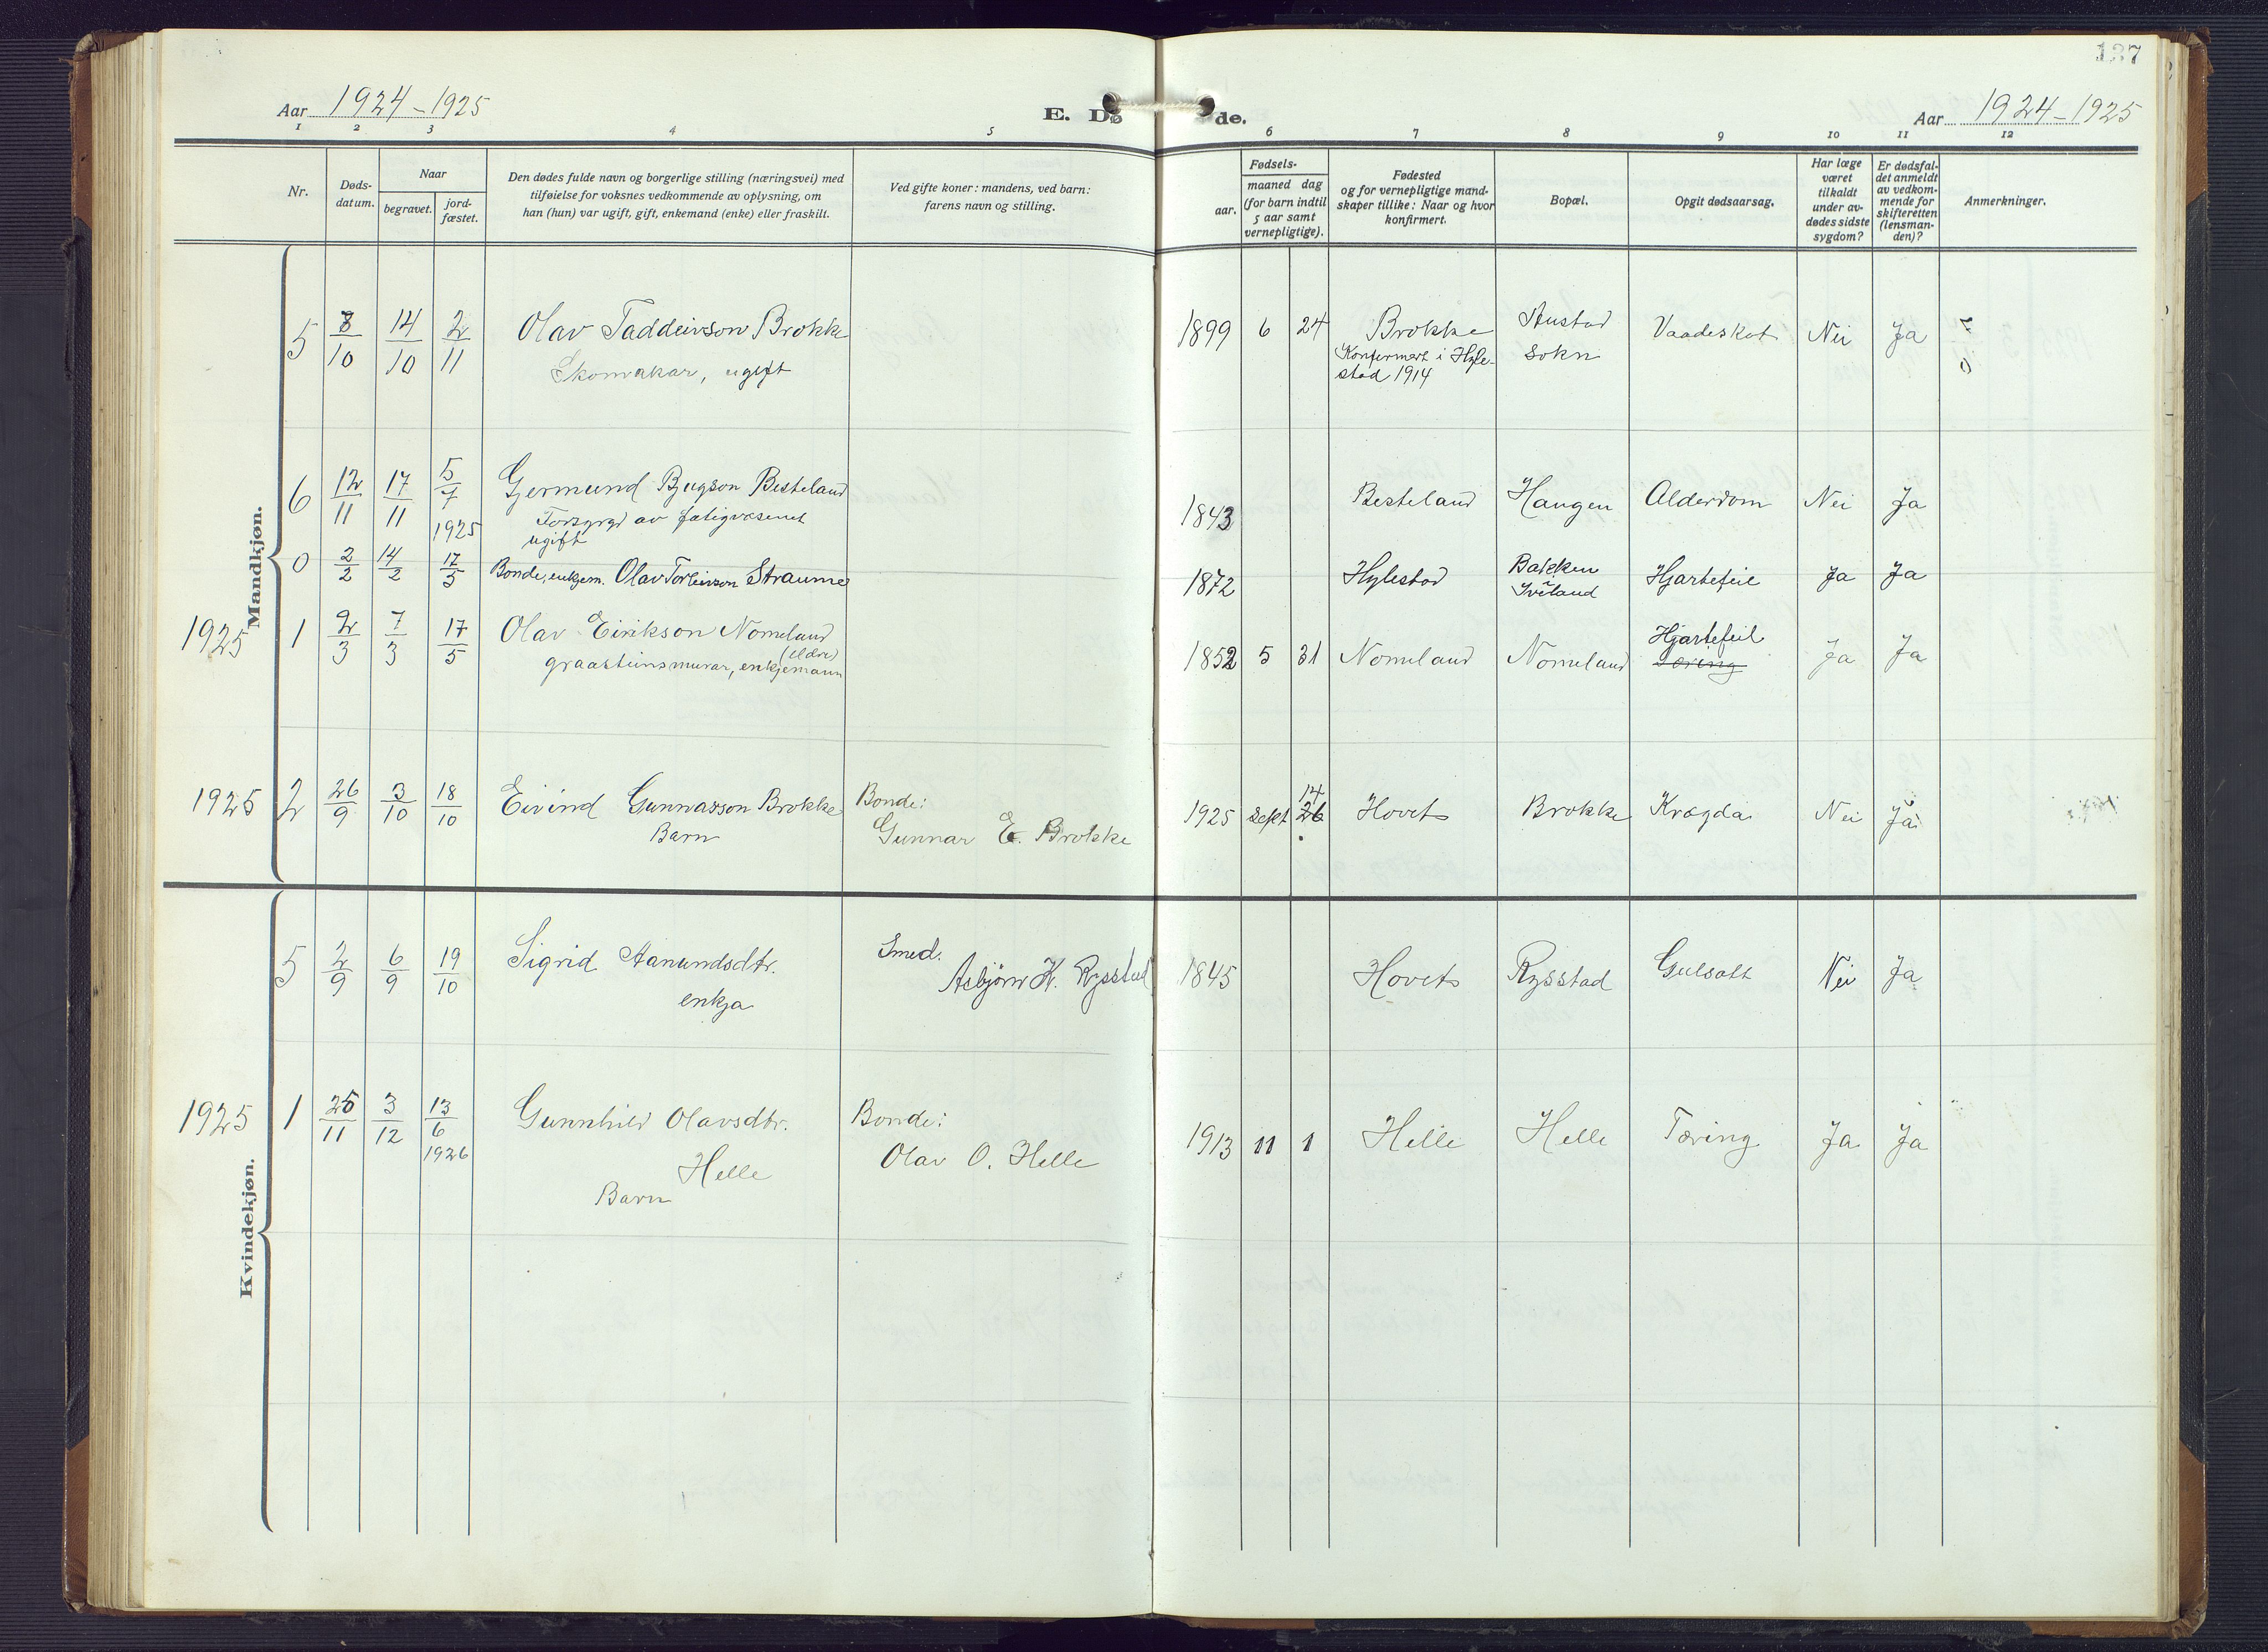 137
Aar 1924-1925
E. Dø
de.
Aar 1924-1925
1 2 3 4 5 6 7 8 9 10 11 12
Nr.
Døds-
datum.
Naar
begravet.
jord-
fæstet.
Den dødes fulde navn og borgerlige stilling (næringsvei) med
tilføielse for voksnes vedkommende av oplysning, om
han (hun) var ugift, gift, enkemand (enke) eller fraskilt.
Ved gifte koner: mandens, ved barn:
farens navn og stilling.
Fødsels-
aar.
maaned dag
(for barn indtil
5 aar samt
vernepligtige).
Fødested
og for vernepligtige mand-
skaper tillike: Naar og hvor
konfirmert.
Bopæl.
Opgit dødsaarsag.
Har læge
været
tilkaldt
under av-
dødes sidste
sygdom?
Er dødsfal-
det anmeldt
av vedkom-
mende for
skifteretten
(lensman-
den)?
Anmerkninger.
Mandkjøn.
5 8/10 14/10 2/11 Olav Taddeivson Brokke 1899 6 24 Brokke Austad Vaadeskot Nei Ja
Skomakar, ugift Konfermert i Hyle- sokn
stad 1914
6 12/11 17/11 5/7 1925 Germund Bjugson Besteland 1843 Besteland Haugen Alderdom Nei Ja
Forsyrgd av fatigvæsenet
ugift
0 2/2 14/2 17/5 Bonde, enkjem. Olav Torleivson Straume 1872 Hylestad Bakken Hjartefeil Ja Ja
Iveland
1925 1 2/3 7/3 17/5 Olav Eirikson Nomeland 1852 5 31 Nomeland Nomeland Hjartefeil Ja Ja
(eldre) Tæring
graasteinsmurar, enkjemann
1925 2 26/9 3/10 18/10 Eivind Gunnarson Brokke Bonde: 1925 sept 14 26 Hovet Brokke Krøgda Nei Ja
Barn Gunnar E. Brokke
Kvindekjøn.
5 2/9 6/9 19/10 Sigrid Aanundsdtr. Smed. 1845 Hovet Rysstad Gulsott Nei Ja
enkja Asbjørn K. Rysstad
1925 1 25/11 3/12 13/6 1926 Gunnhild Olavsdtr. Bonde: 1913 11 1 Helle Helle Tæring Ja Ja
Helle Olav O. Helle
Barn